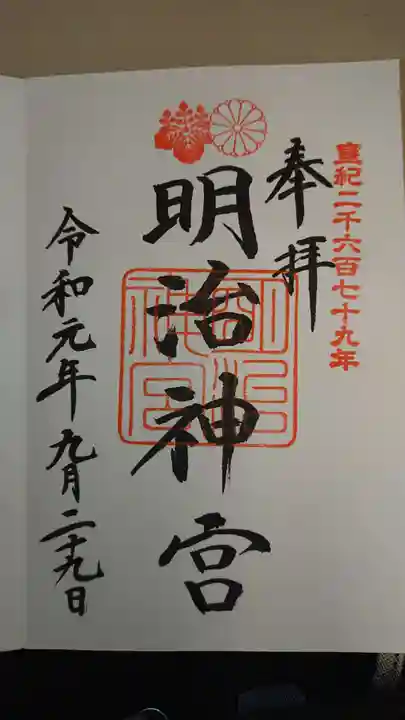 皇紀二千六百七十九年
奉拝
明治神宮
明治神宮
令和元年九月二十九日